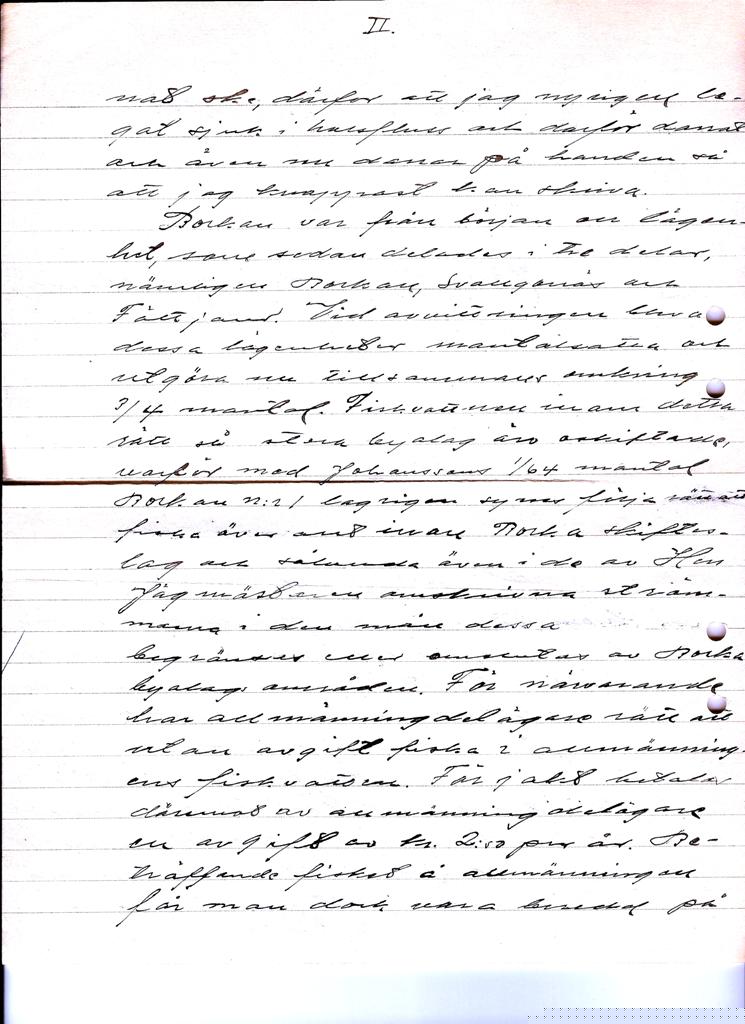 II.
nat ske, därför att jag nyligen le-
gat sjuk i halsfluss och därför darrat
och även nu darrar på handen så
att jag knappast kan skriva.
Borkan var från början en lägen-
het, som sedan delades i tre delar,
nämligen Borkan, Svanganäs och
Fättjaur. Vid avvittringen blevo
dessa lägenheter mantalsatta och
utgöra nu tillsammans omkring
3/4 mantal. Fiskvattnen inom detta
rätt så stora byalag äro oskiftade,
varför med Johanssons 1/64 mantal
Borkan n:r 1 lagligen synes följa rätt att
fiska över allt inom Borka skiftes-
lag och sålunda även i de av Herr
Jägmästaren omskrivna ström-
marna i den mån dessa
begränses eller omslutas av Borka
byalags områden. För närvarande
har allmänningdelägare rätt att
utan avgift fiska i allmänning-
ens fiskvatten. För jakt betalar
däremot av allmänningdelägare
en avgift av kr. 2:50 per år. Be-
träffande fisket å allmänningen
får man dock vara beredd på